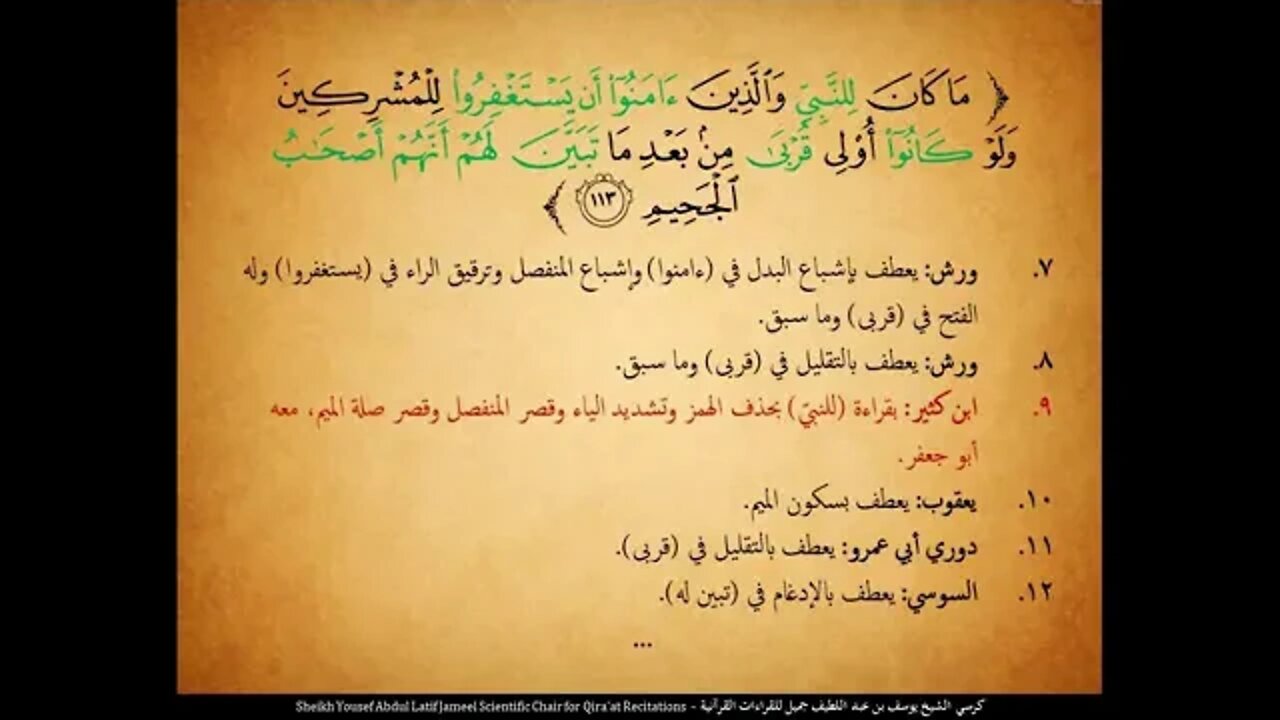 ﴿ مَا كَانَ لِلنَّبِيِّ وَٱلَّذِينَ ءَامَنُوٓا۟ أَن يَسْتَغْفِرُوا۟ لِلْمُشْرِكِينَ
وَلَوْ كَانُوٓا۟ أُو۟لِى قُرْبَىٰ مِنۢ بَعْدِ مَا تَبَيَّنَ لَهُمْ أَنَّهُمْ أَصْحَٰبُ
ٱلْجَحِيمِ ١١٣ ﴾
٧. ورش: يعطف بإشباع البدل في (ءامنوا) وإشباع المنفصل وترقيق الراء في (يستغفروا) وله
الفتح في (قربى) وما سبق.
٨. ورش: يعطف بالتقليل في (قربى) وما سبق.
٩. ابن كثير: بقراءة (للنبيّ) بحذف الهمز وتشديد الياء وقصر المنفصل وقصر صلة الميم، معه
أبو جعفر.
١٠. يعقوب: يعطف بسكون الميم.
١١. دوري أبي عمرو: يعطف بالتقليل في (قربى).
١٢. السوسي: يعطف بالإدغام في (تبين له).
...
Sheikh Yousef Abdul Latif Jameel Scientific Chair for Qira'at Recitations - كرسي الشيخ يوسف بن عبد اللطيف جميل للقراءات القرآنية